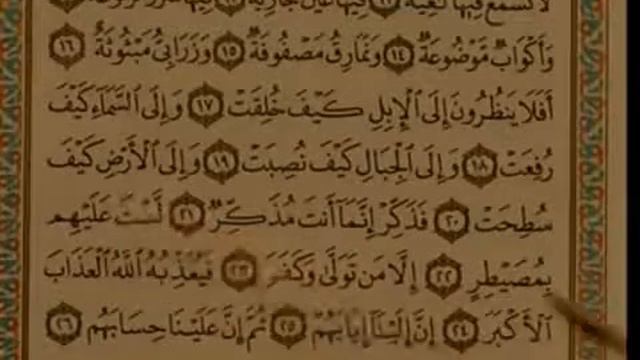 لَّا تَسْمَعُ فِيهَا لَٰغِيَةً ١١ فِيهَا عَيْنٌ جَارِيَةٌ ١٢ فِيهَا سُرُرٌ مَّرْفُوعَةٌ ١٣
وَأَكْوَابٌ مَّوْضُوعَةٌ ١٤ وَنَمَارِقُ مَصْفُوفَةٌ ١٥ وَزَرَابِيُّ مَبْثُوثَةٌ ١٦
أَفَلَا يَنظُرُونَ إِلَى الْإِبِلِ كَيْفَ خُلِقَتْ ١٧ وَإِلَى السَّمَاءِ كَيْفَ
رُفِعَتْ ١٨ وَإِلَى الْجِبَالِ كَيْفَ نُصِبَتْ ١٩ وَإِلَى الْأَرْضِ كَيْفَ
سُطِحَتْ ٢٠ فَذَكِّرْ إِنَّمَا أَنتَ مُذَكِّرٌ ٢١ لَّسْتَ عَلَيْهِم
بِمُصَيْطِرٍ ٢٢ إِلَّا مَن تَوَلَّىٰ وَكَفَرَ ٢٣ فَيُعَذِّبُهُ اللَّهُ الْعَذَابَ
الْأَكْبَرَ ٢٤ إِنَّ إِلَيْنَا إِيَابَهُمْ ٢٥ ثُمَّ إِنَّ عَلَيْنَا حِسَابَهُم ٢٦